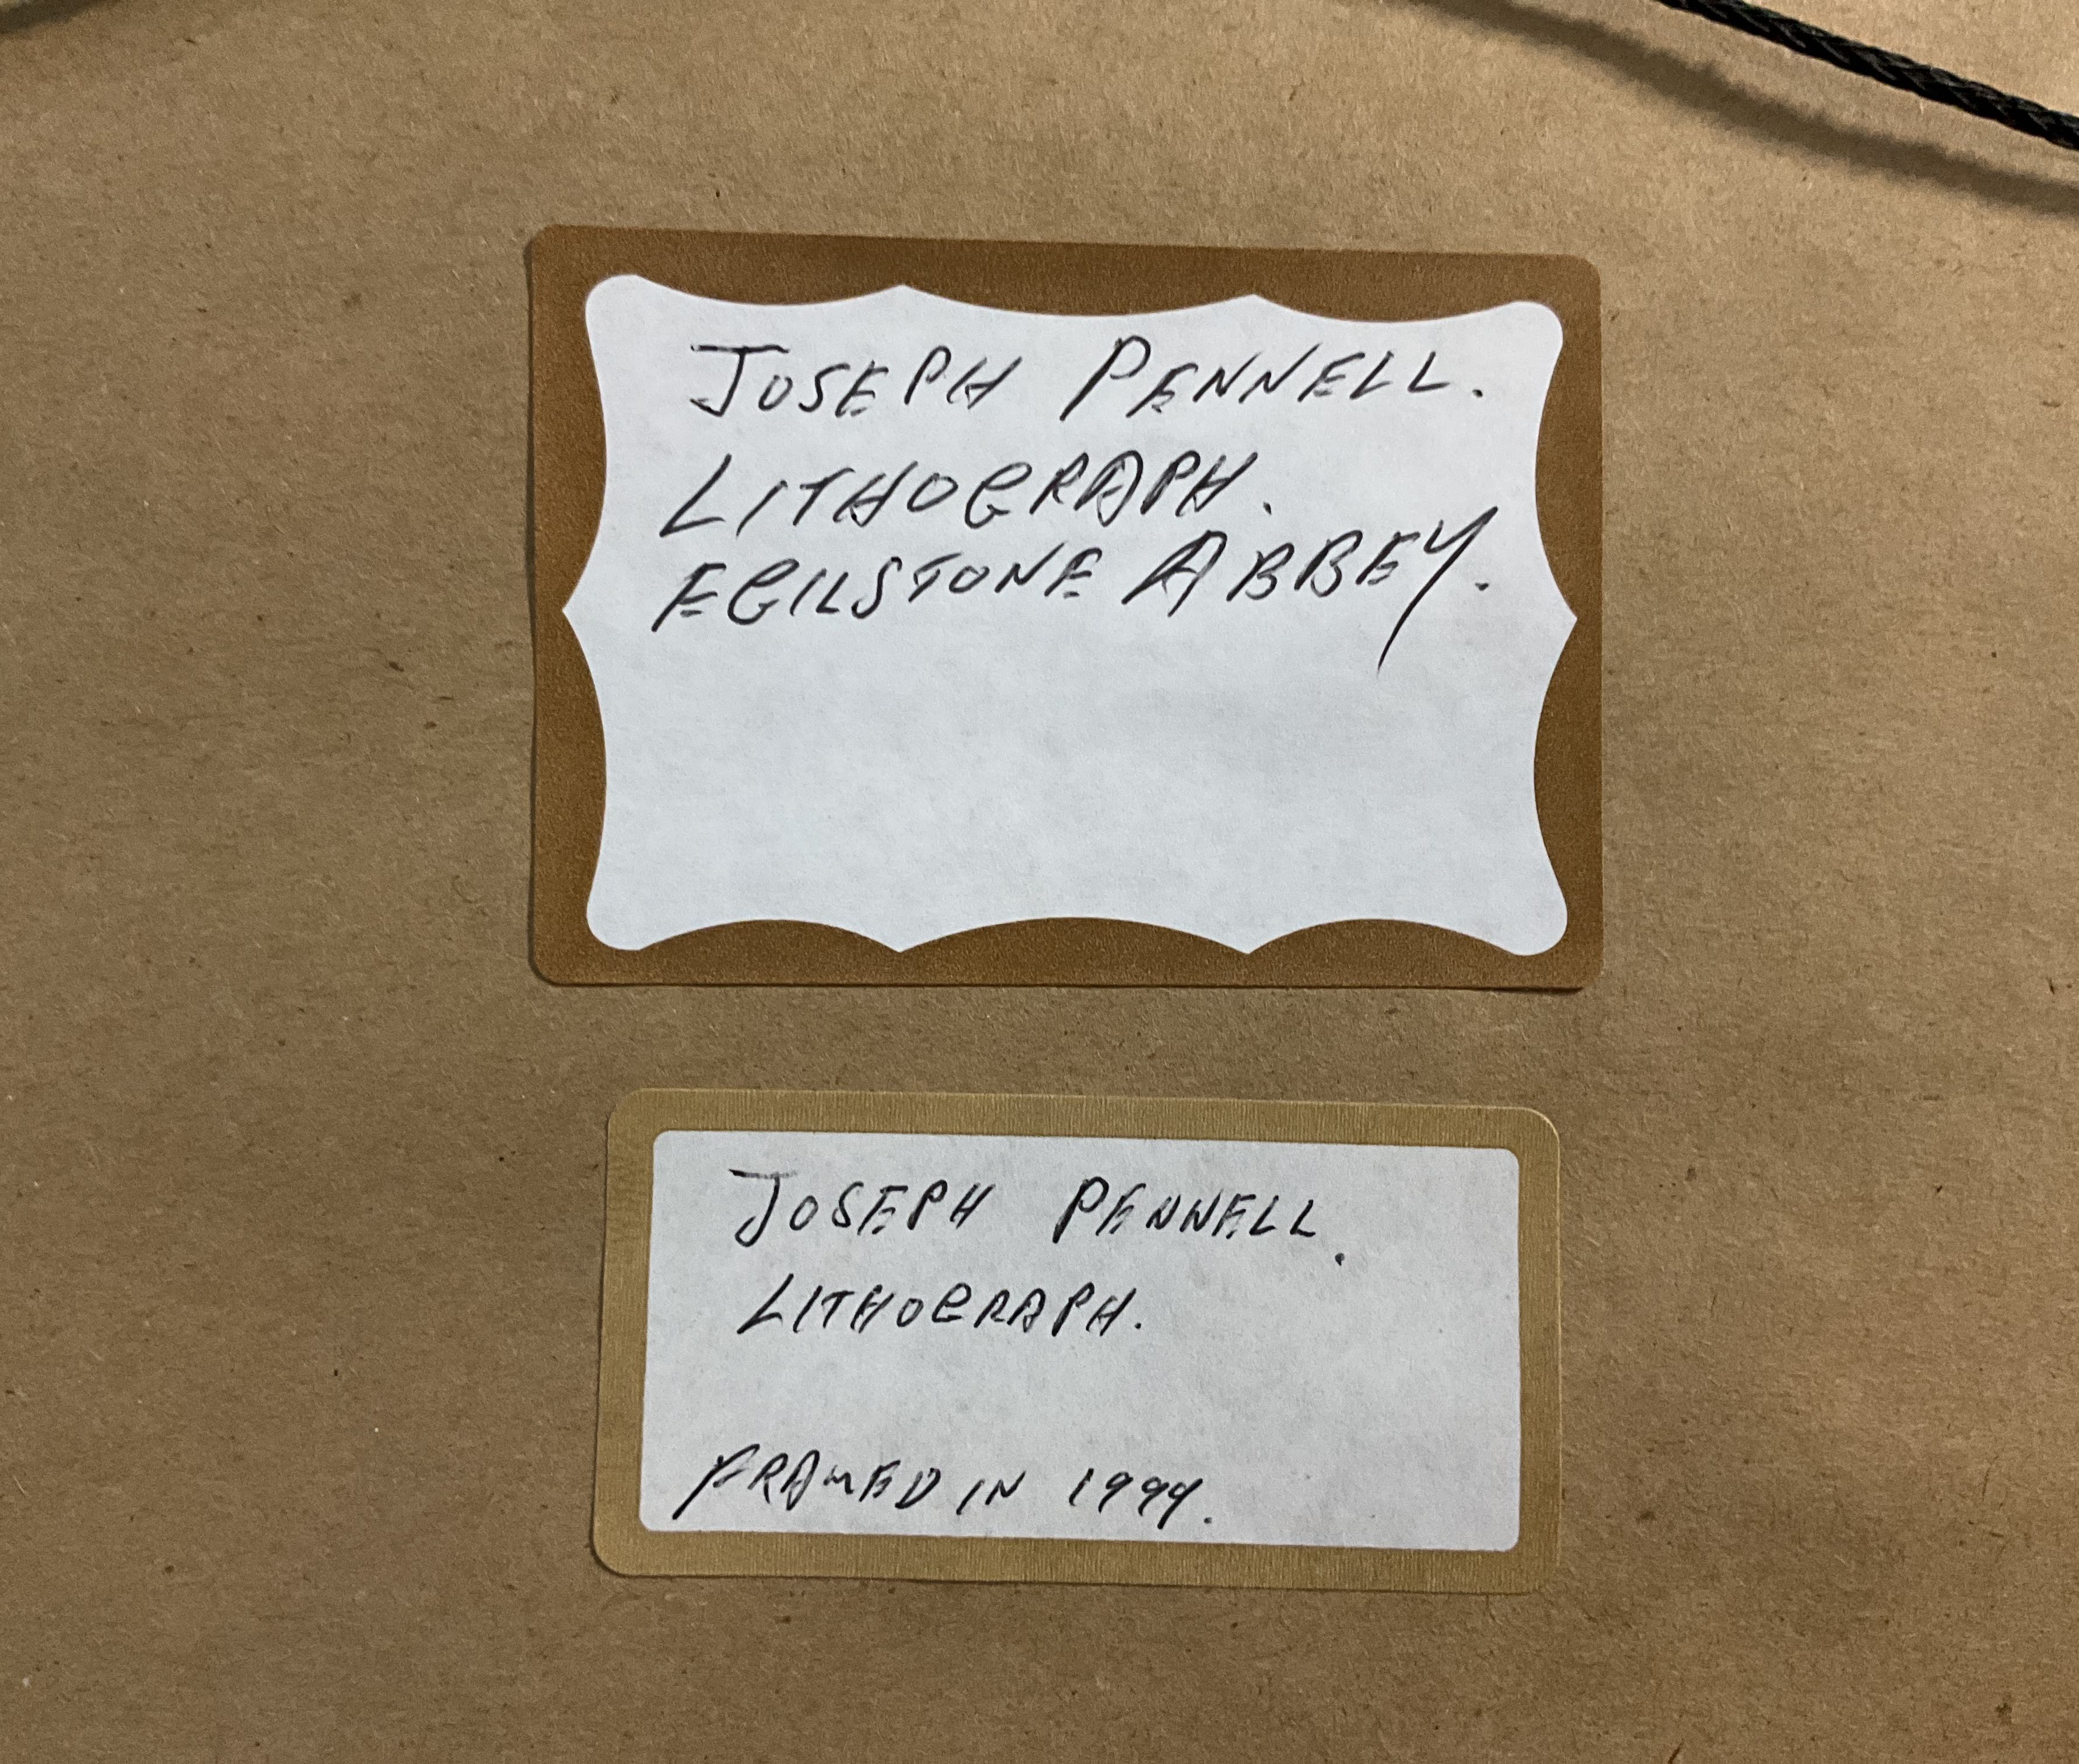 JOSEPH PENNELL.
LITHOGRAPH.
EGILSTONE ABBEY.
JOSEPH PENNELL.
LITHOGRAPH.
FRAMED IN 1999.